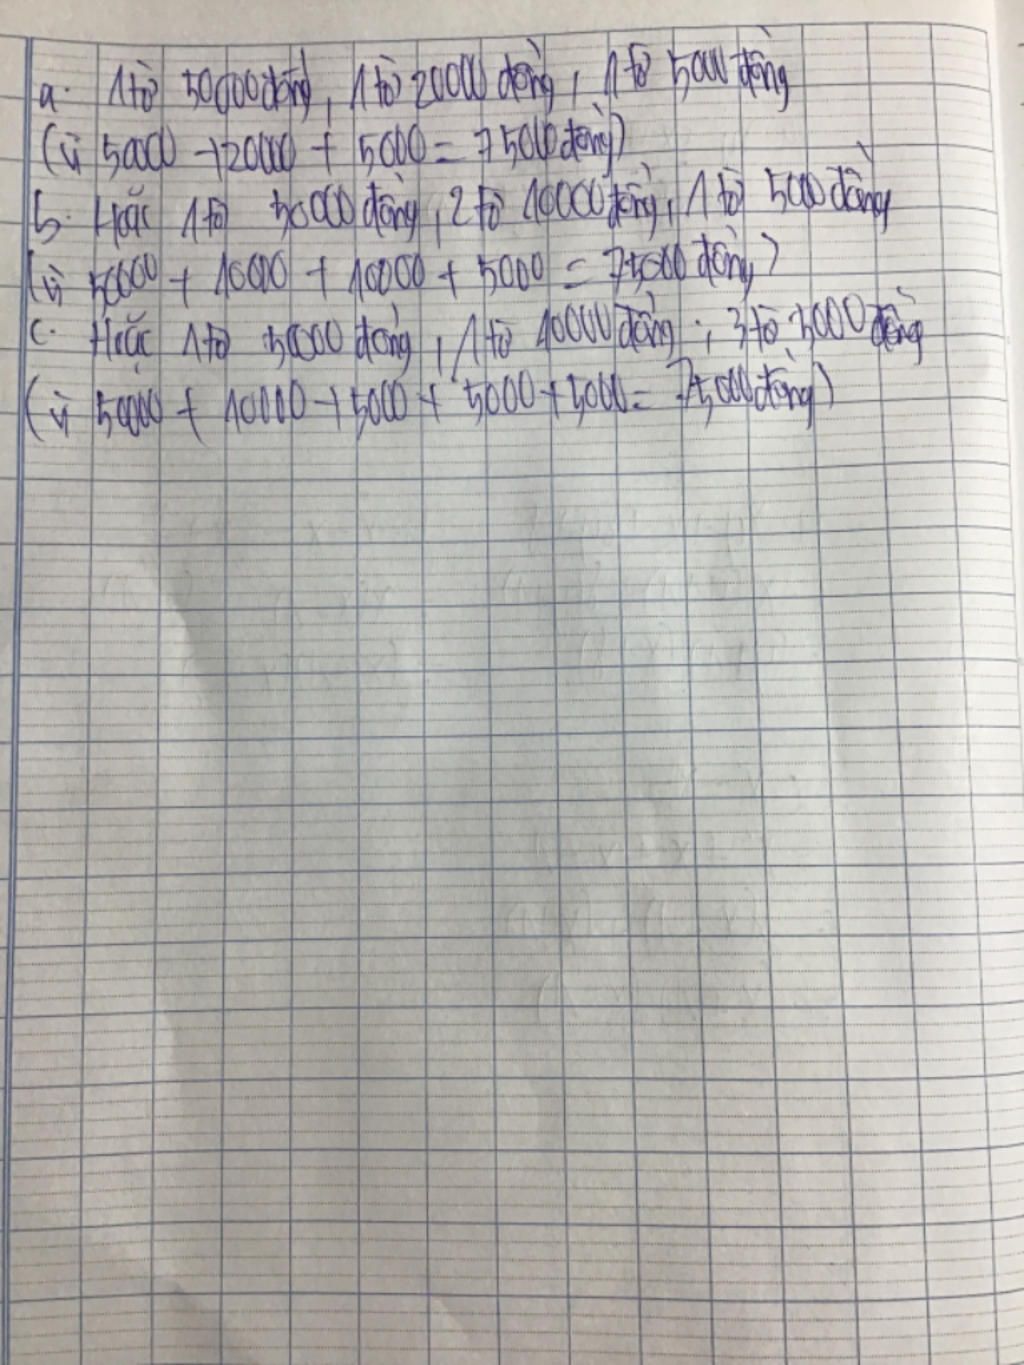 a. 1 tờ 50000 đồng, 1 tờ 20000 đồng, 1 tờ 5000 đồng
(vì 50000 + 20000 + 5000 = 75000 đồng)
b. Hoặc 1 tờ 50000 đồng, 2 tờ 10000 đồng, 1 tờ 5000 đồng
(vì 50000 + 10000 + 10000 + 5000 = 75000 đồng)
c. Hoặc 1 tờ 50000 đồng, 1 tờ 10000 đồng, 3 tờ 5000 đồng
(vì 50000 + 10000 + 5000 + 5000 + 5000 = 75000 đồng)